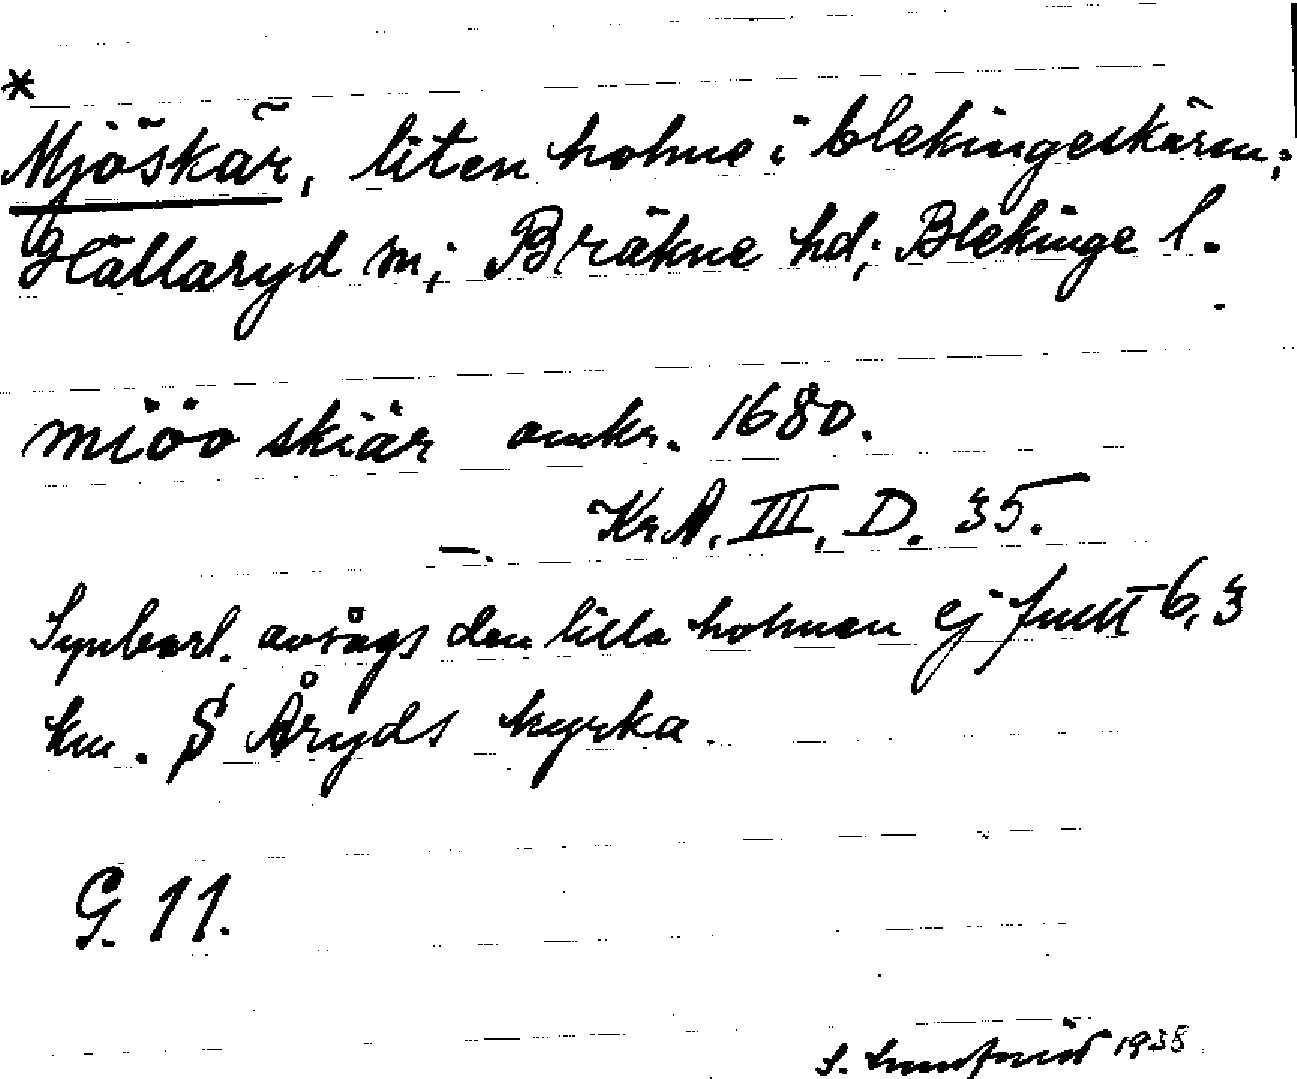 *
Mjöskär, liten holme i blekingeskären;
Hällaryd sn; Bräkne hd; Blekinge l.
miöo skiär omkr. 1680.
KrA. III, D. 35.
Synbarl. avsågs den lilla holmen ej fullt 6,3
km. S Åryds kyrka.
G. 11.
1938